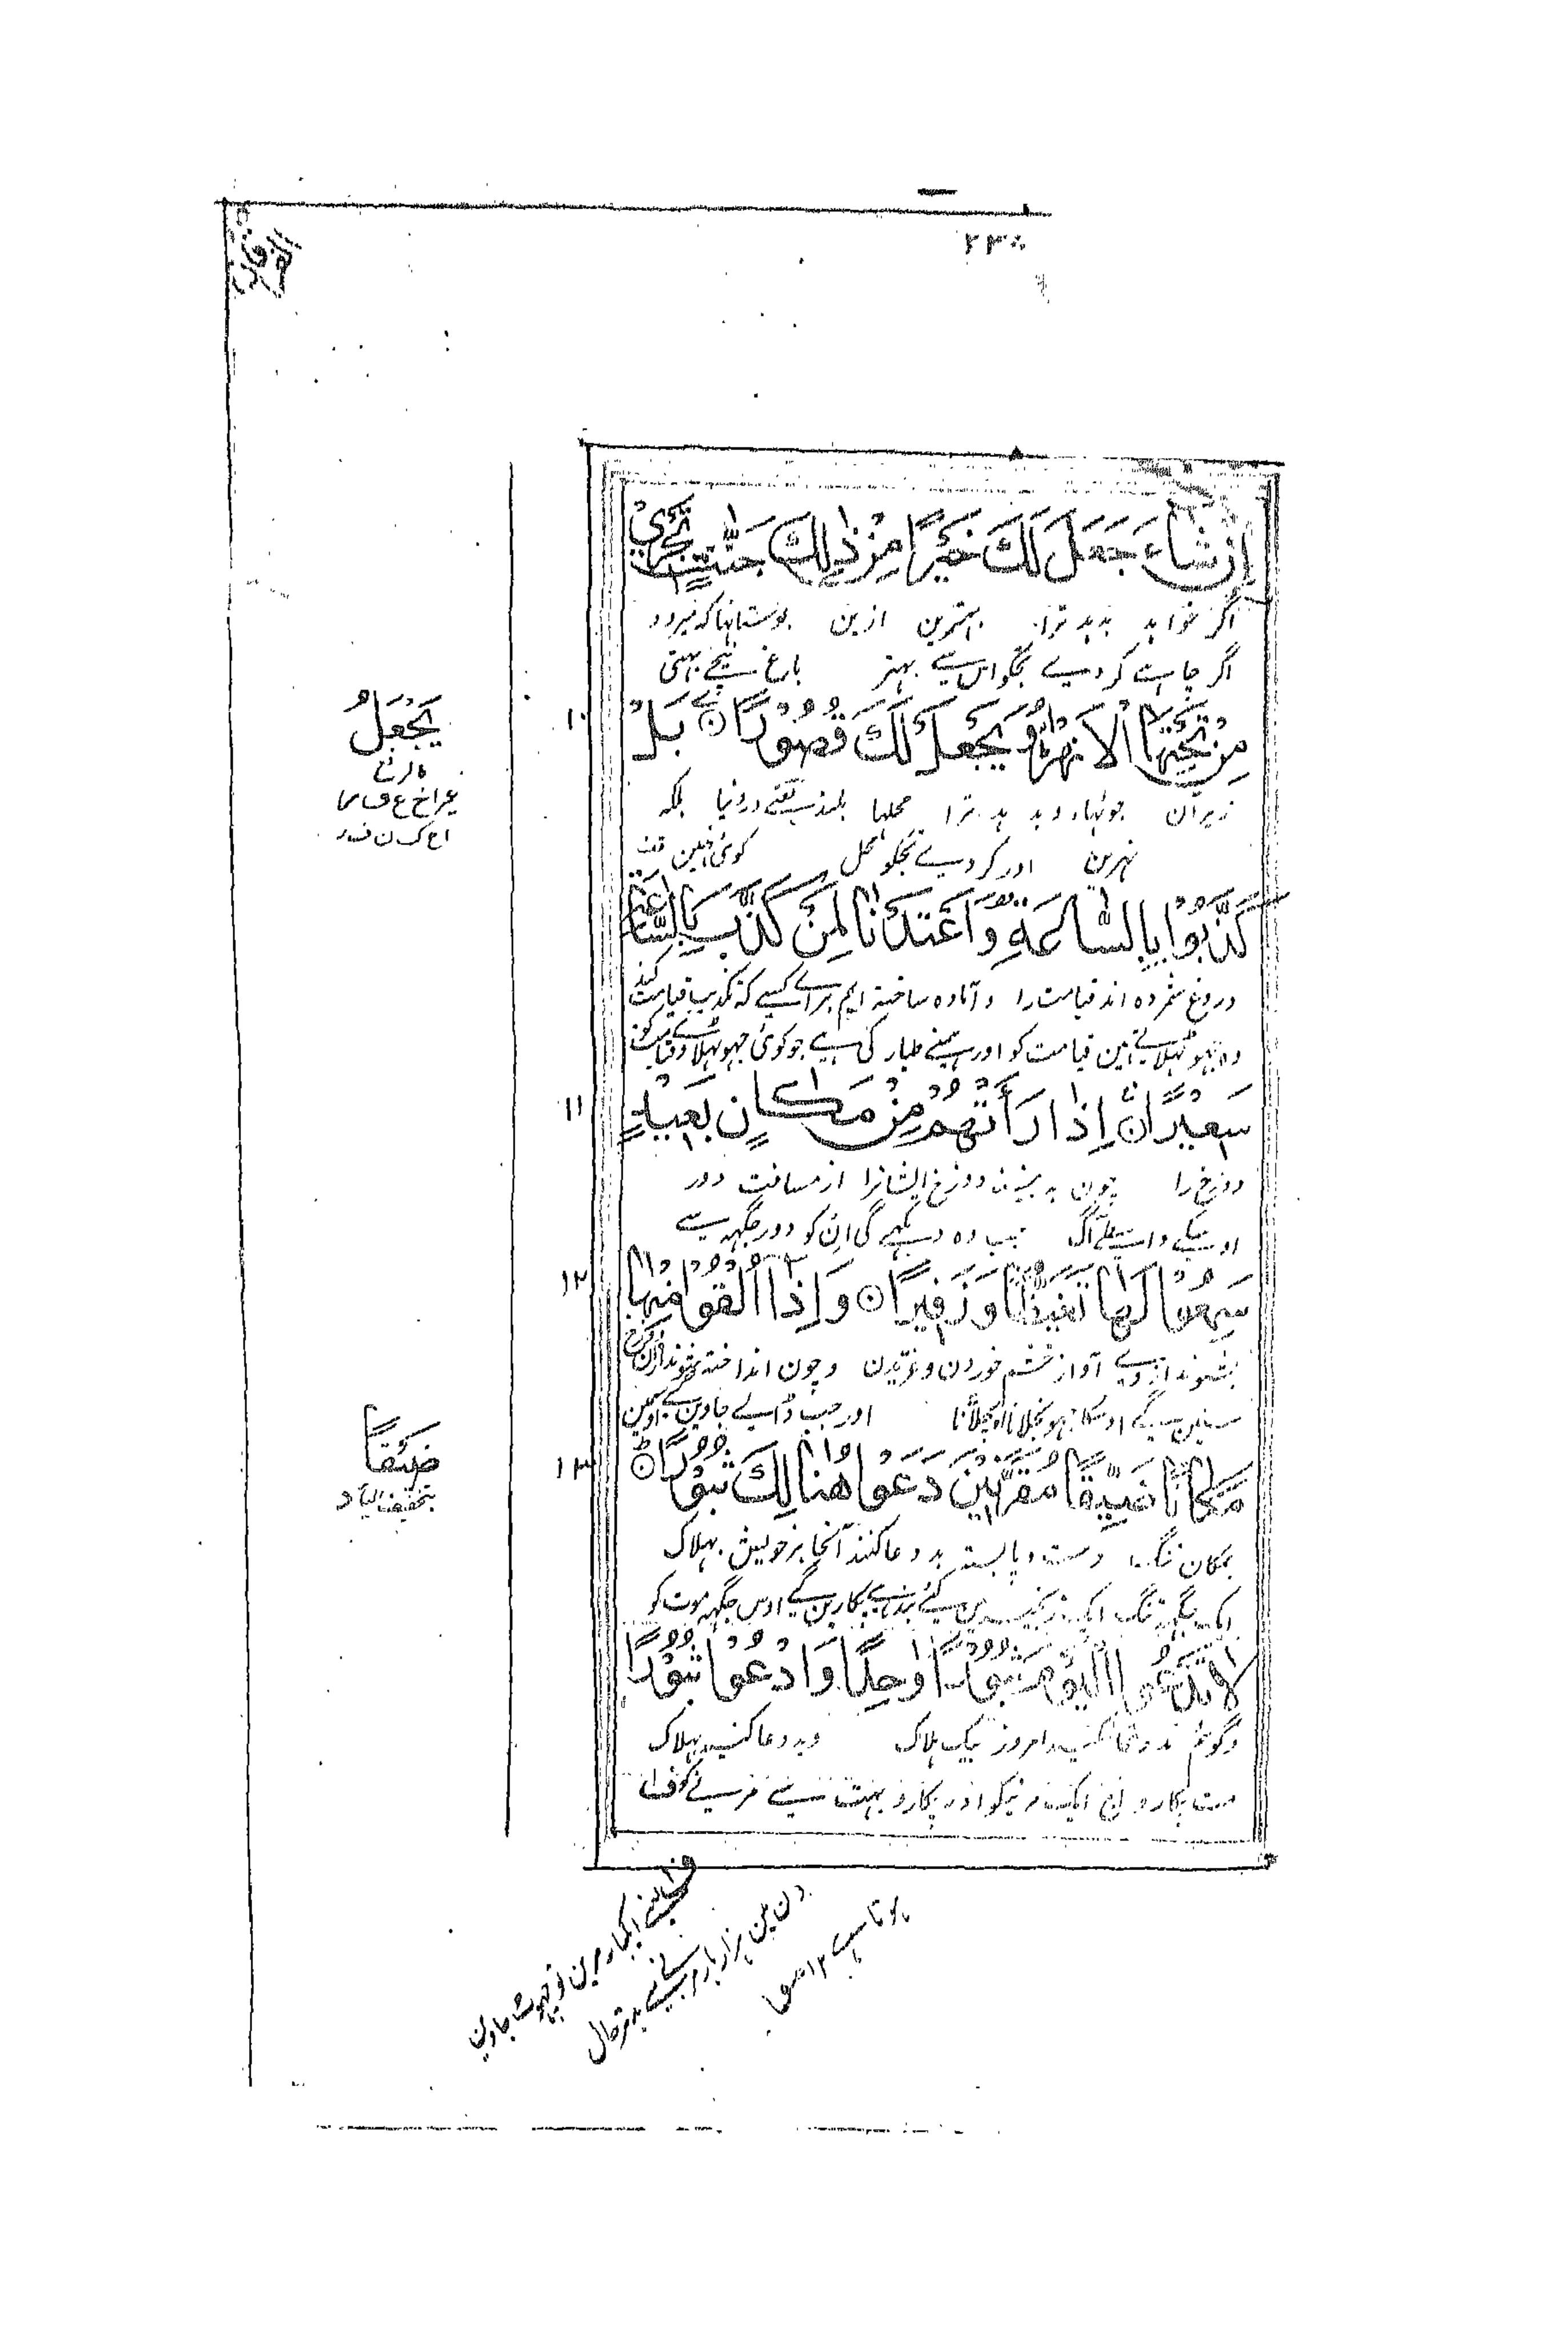 ٢٣٥
الفرقان
اِنْ شَاءَ جَعَلَ لَكَ خَيْرًا مِّنْ ذٰلِكَ جَنّٰتٍ تَجْرِيْ
اگر خواہد بدہد ترا بہترین ازین بوستانہا کہ میرود
اگر چاہے کردیے تجکو اس سے بہتر باغ نیچے بہتی
١٠
مِنْ تَحْتِهَا الْاَنْهٰرُ وَيَجْعَلْ لَّكَ قُصُوْرًا ۝ بَلْ
زیر آن جویہا و بدہد ترا محلہا بلند یعنے در دنیا بلکہ
نہرین اور کردیے تجکو محل کوئی نہین
يَجْعَلُ
بالرفع
كَذَّبُوْا بِالسَّاعَةِ وَاَعْتَدْنَا لِمَنْ كَذَّبَ بِالسَّاعَةِ
دروغ شمردہ اند قیامت را و آمادہ ساختہ ایم برائے کسے کہ تکذیب قیامت کند
وہ جہوٹہلاتے ہین قیامت کو اور ہمنے طیار کی ہے جو کوئی جہوٹہلاوے قیامت کو
١١
سَعِيْرًا ۝ اِذَا رَاَتْهُمْ مِّنْ مَّكَانٍ بَعِيْدٍ
دوزخ را چون بہ بیند دوزخ ایشانرا از مسافت دور
اوسکے واسطے آگ جب وہ دیکہے گی ان کو دور جگہہ سے
١٢
سَمِعُوْا لَهَا تَغَيُّظًا وَّزَفِيْرًا ۝ وَاِذَا اُلْقُوْا مِنْهَا
بشنوند از وے آواز خشم خوردن و غریدن و چون انداختہ شوند ازان دوزخ
سنین گے اوسکا جہونجلانا اور چلانا اور جب ڈالے جاوین گے اوسمین
١٣
مَكَانًا ضَيِّقًا مُّقَرَّنِيْنَ دَعَوْا هُنَالِكَ ثُبُوْرًا ۝
ضَيْقًا
بتخفیف الیاء
بمکان تنگ دست و پا بستہ بد دعا کنند آنجا بر خویش بہلاک
ایک جگہہ تنگ ایک زنجیر مین کئی بندہے پکارین گے اوس جگہہ موت کو
لَا تَدْعُوا الْيَوْمَ ثُبُوْرًا وَّاحِدًا وَّادْعُوْا ثُبُوْرًا
و گوئیم بد دعا مکنید امروز یک ہلاک و بد دعا کنید بہلاک
مت پکارو آج ایک مرنیکو اور پکارو بہت سے مرنے کو ف
ف یعنے ایکبار مرین تو چہوٹ جاوین
دن مین ہزار بار مرنے سے بدتر حال
ہوتا ہے ١٢